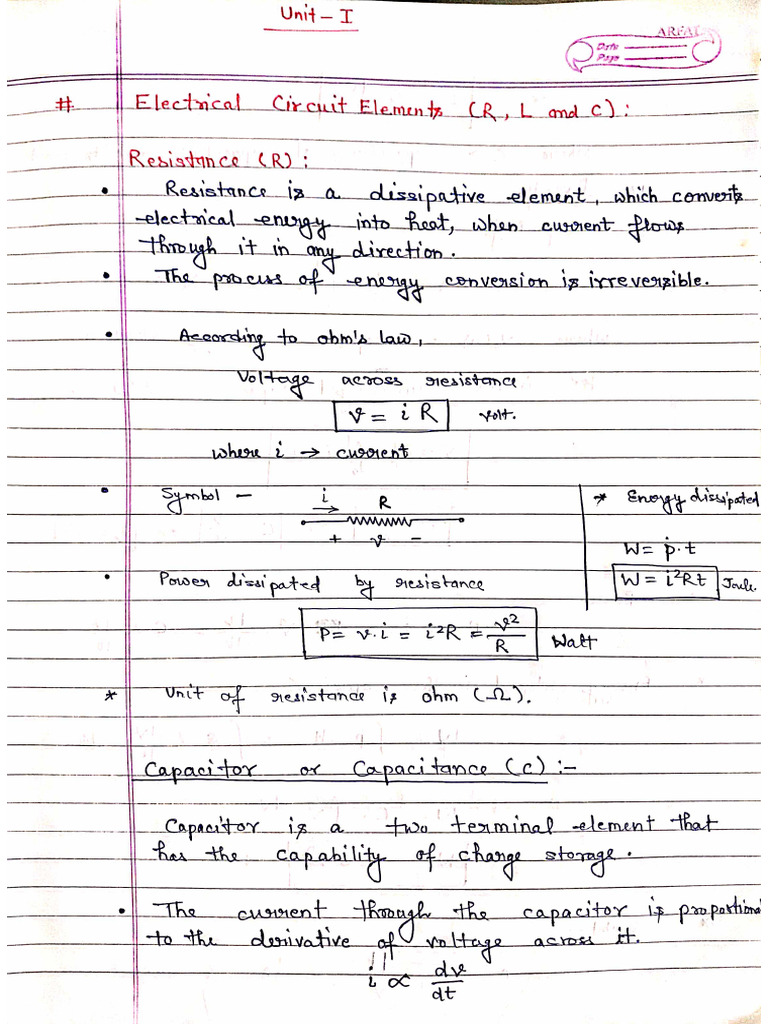 Unit - I
ARFAT
Date
Page
# Electrical Circuit Elements (R, L and C) :
Resistance (R) :
• Resistance is a dissipative element, which converts
electrical energy into heat, when current flows
through it in any direction.
• The process of energy conversion is irreversible.
• According to ohm's law,
Voltage across resistance
v = i R volt.
where i → current
• Symbol - i R
+ v -
* Energy dissipated
W = p.t
W = i²Rt Joule.
• Power dissipated by resistance
P = v.i = i²R = v²/R Watt
* Unit of resistance is ohm (Ω).
Capacitor or Capacitance (C) :-
Capacitor is a two terminal element that
has the capability of charge storage.
• The current through the capacitor is proportional
to the derivative of voltage across it.
i ∝ dv/dt